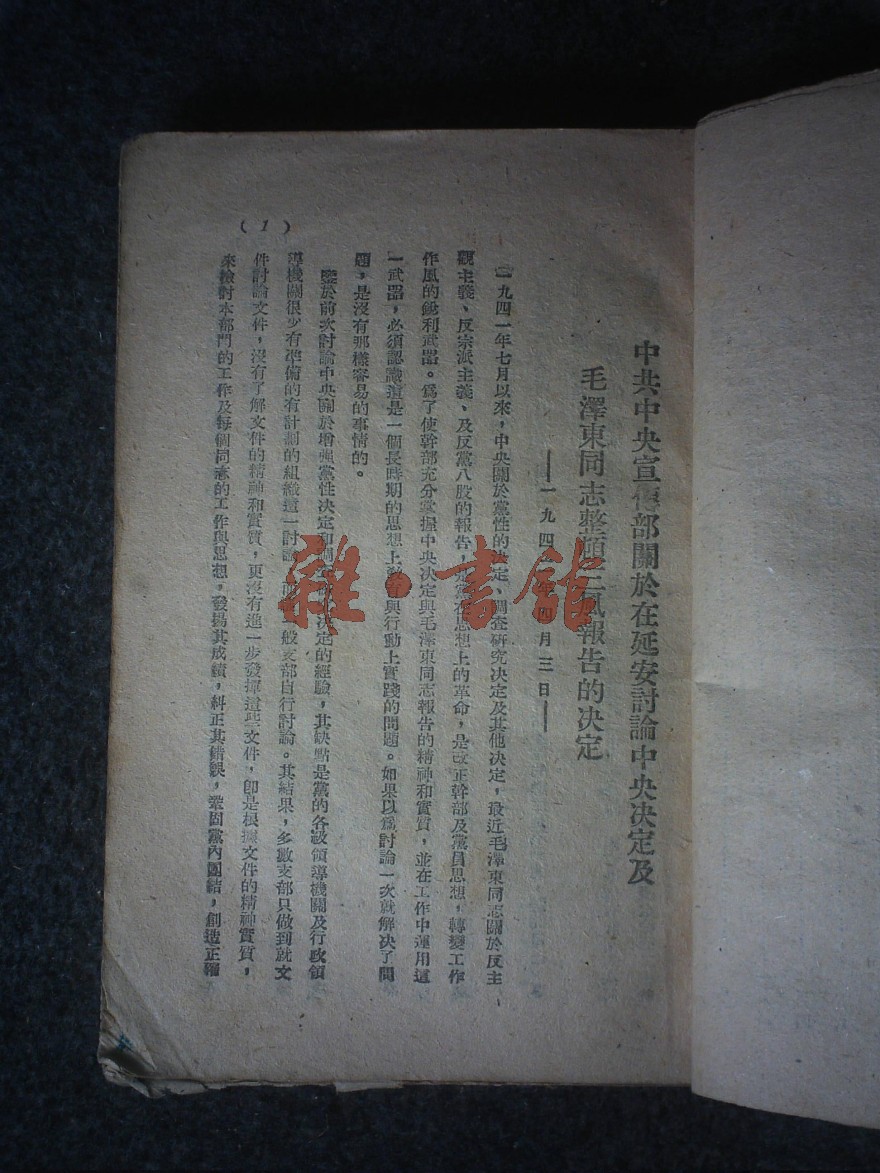 中共中央宣傳部關於在延安討論中央决定及
毛澤東同志整頓三風報告的决定
——一九四 年四月三日——
㈠一九四一年七月以來，中央關於黨性的决定、調查研究决定及其他决定，最近毛澤東同志關於反主
觀主義、反宗派主義、及反黨八股的報告，是黨在思想上的革命，是改正幹部及黨員思想，轉變工作
作風的銳利武器。爲了使幹部充分掌握中央决定與毛澤東同志報告的精神和實質，並在工作中運用這
一武器，必須認識這是一個長時期的思想上教育與行動上實踐的問題。如果以爲討論一次就解决了問
題，是沒有那樣容易的事情的。
鑒於前次討論中央關於增强黨性决定和調 决定的經驗，其缺點是黨的各級領導機關及行政領
導機關很少有準備的有計劃的組織這一討論， 一般支部自行討論。其結果，多數支部只做到就文
件討論文件，沒有了解文件的精神和實質，更沒有進一步發揮這些文件，卽是根據文件的精神實質，
來檢討本部門的工作及每個同志的工作與思想，發揚其成績，糾正其錯誤，鞏固黨內團結，創造正確
(1)
雜·書館